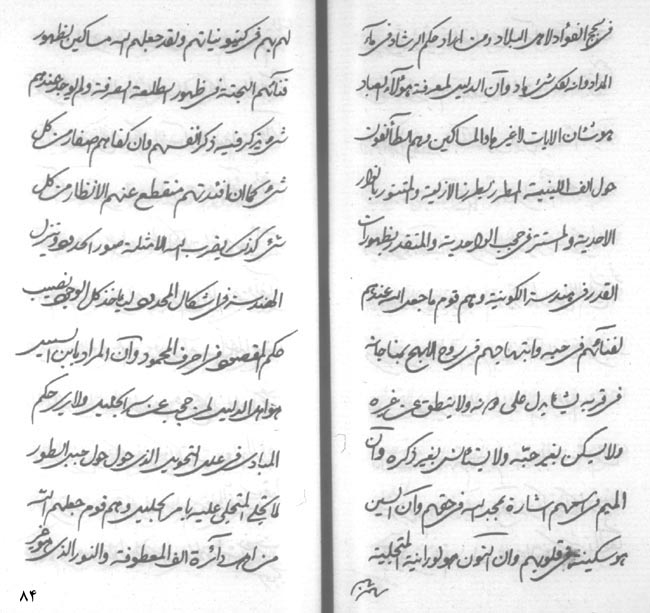 فی لجج الفؤاد لاهل البلاد ومن المداد حكم الرشاد فی ماء
المداد وانه لفی كل شیء باد وان الدلیل لمعرفة هؤلاء العباد
هو شان الایات لا غیر ها والمساكین وهم الطائفون
حول الف اللینیة المطرز بطرز الازلیة والمتنور بانوار
الاحدیة والمستتر فی حجب الواحدیة والمتقدر بظهورات
القدر فی هندسة الكونیة وهم قوم ما جعل الله عندهم
لفنائهم فی حبه وابتهاجهم فی روح الابهج بمناجاته
فی قربه شیئا یدل علی دونه ولا ینطق عن غیره
ولا یسكن بغیر حبه ولا یستانس بغیر ذكره وان
المیم فی اسمهم اشارة بمجد الله فی حقهم وان السین
هو سكینة فی قلوبهم وان النون هو نورانیة المتجلیة
لهم بهم فی كینونیاتهم ولقد جعلهم الله مساكین لظهور
فنائهم البحتة فی ظهور الطلعة المعرفة ولم یوجد عندهم
شیء یذكر فیه ذكر انفسهم وان كفاهم صفار من كل
شیء كما ان افئدتهم منقطع عنهم الانظار من كل
شیء كذلك یضرب الله الامثلة صور الحدود وتنزل
الهندسة فی اشكال المحدود لیاخذ كل الوجود نصیب
حكم المقصود فی احرف المحمود وان المراد بابن السبیل
هو اهل الدلیل لمن حجب عن سر الجلیل ولا یری حكم
المبادی فی علل التحویل الذی حول حول جبل الطور
لا تجلی المتجلی علیه بامر الجلیل وهم قوم جعلهم الله
من اهل دائرة الف المعطوفة والنور الذی هو فی
٨۴